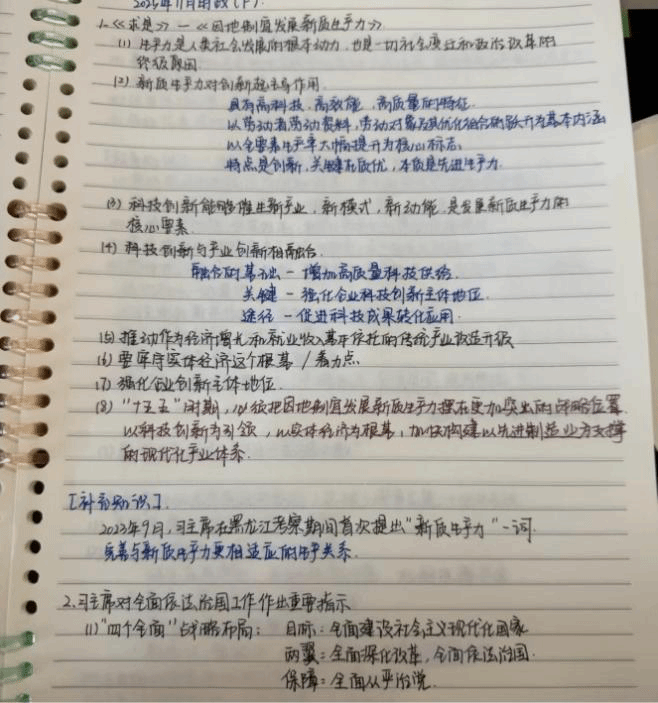 2025年11月时政(下)
1.《求是》—《因地制宜发展新质生产力》
(1) 生产力是人类社会发展的根本动力,也是一切社会变迁和政治改革的
终极原因
(2) 新质生产力对创新起主导作用
具有高科技、高效能、高质量的特征.
以劳动者劳动资料,劳动对象及其优化组合的跃升为基本内涵
以全要素生产率大幅提升为核心标志,
特点是创新,关键在质优,本质是先进生产力.
(3) 科技创新能够催生新产业,新模式,新动能,是发展新质生产力的
核心要素.
(4) 科技创新与产业创新相融合.
融合的基础 - 增加高质量科技供给.
关键 - 强化企业科技创新主体地位.
途径 - 促进科技成果转化应用.
(5) 推动作为经济增长和就业收入基本依托的传统产业改造升级
(6) 要牢守实体经济这个根基 / 着力点
(7) 强化企业创新主体地位.
(8) "十五五"时期,必须把因地制宜发展新质生产力摆在更加突出的战略位置.
以科技创新为引领,以实体经济为根基,加快构建以先进制造业为支撑
的现代化产业体系.
[补充知识].
2023年9月,习主席在黑龙江考察期间首次提出"新质生产力"一词.
完善与新质生产力更相适应的生产关系.
2.习主席对全面依法治国工作作出重要指示
(1)"四个全面"战略布局: 目标:全面建设社会主义现代化国家
两翼:全面深化改革,全面依法治国.
保障:全面从严治党.